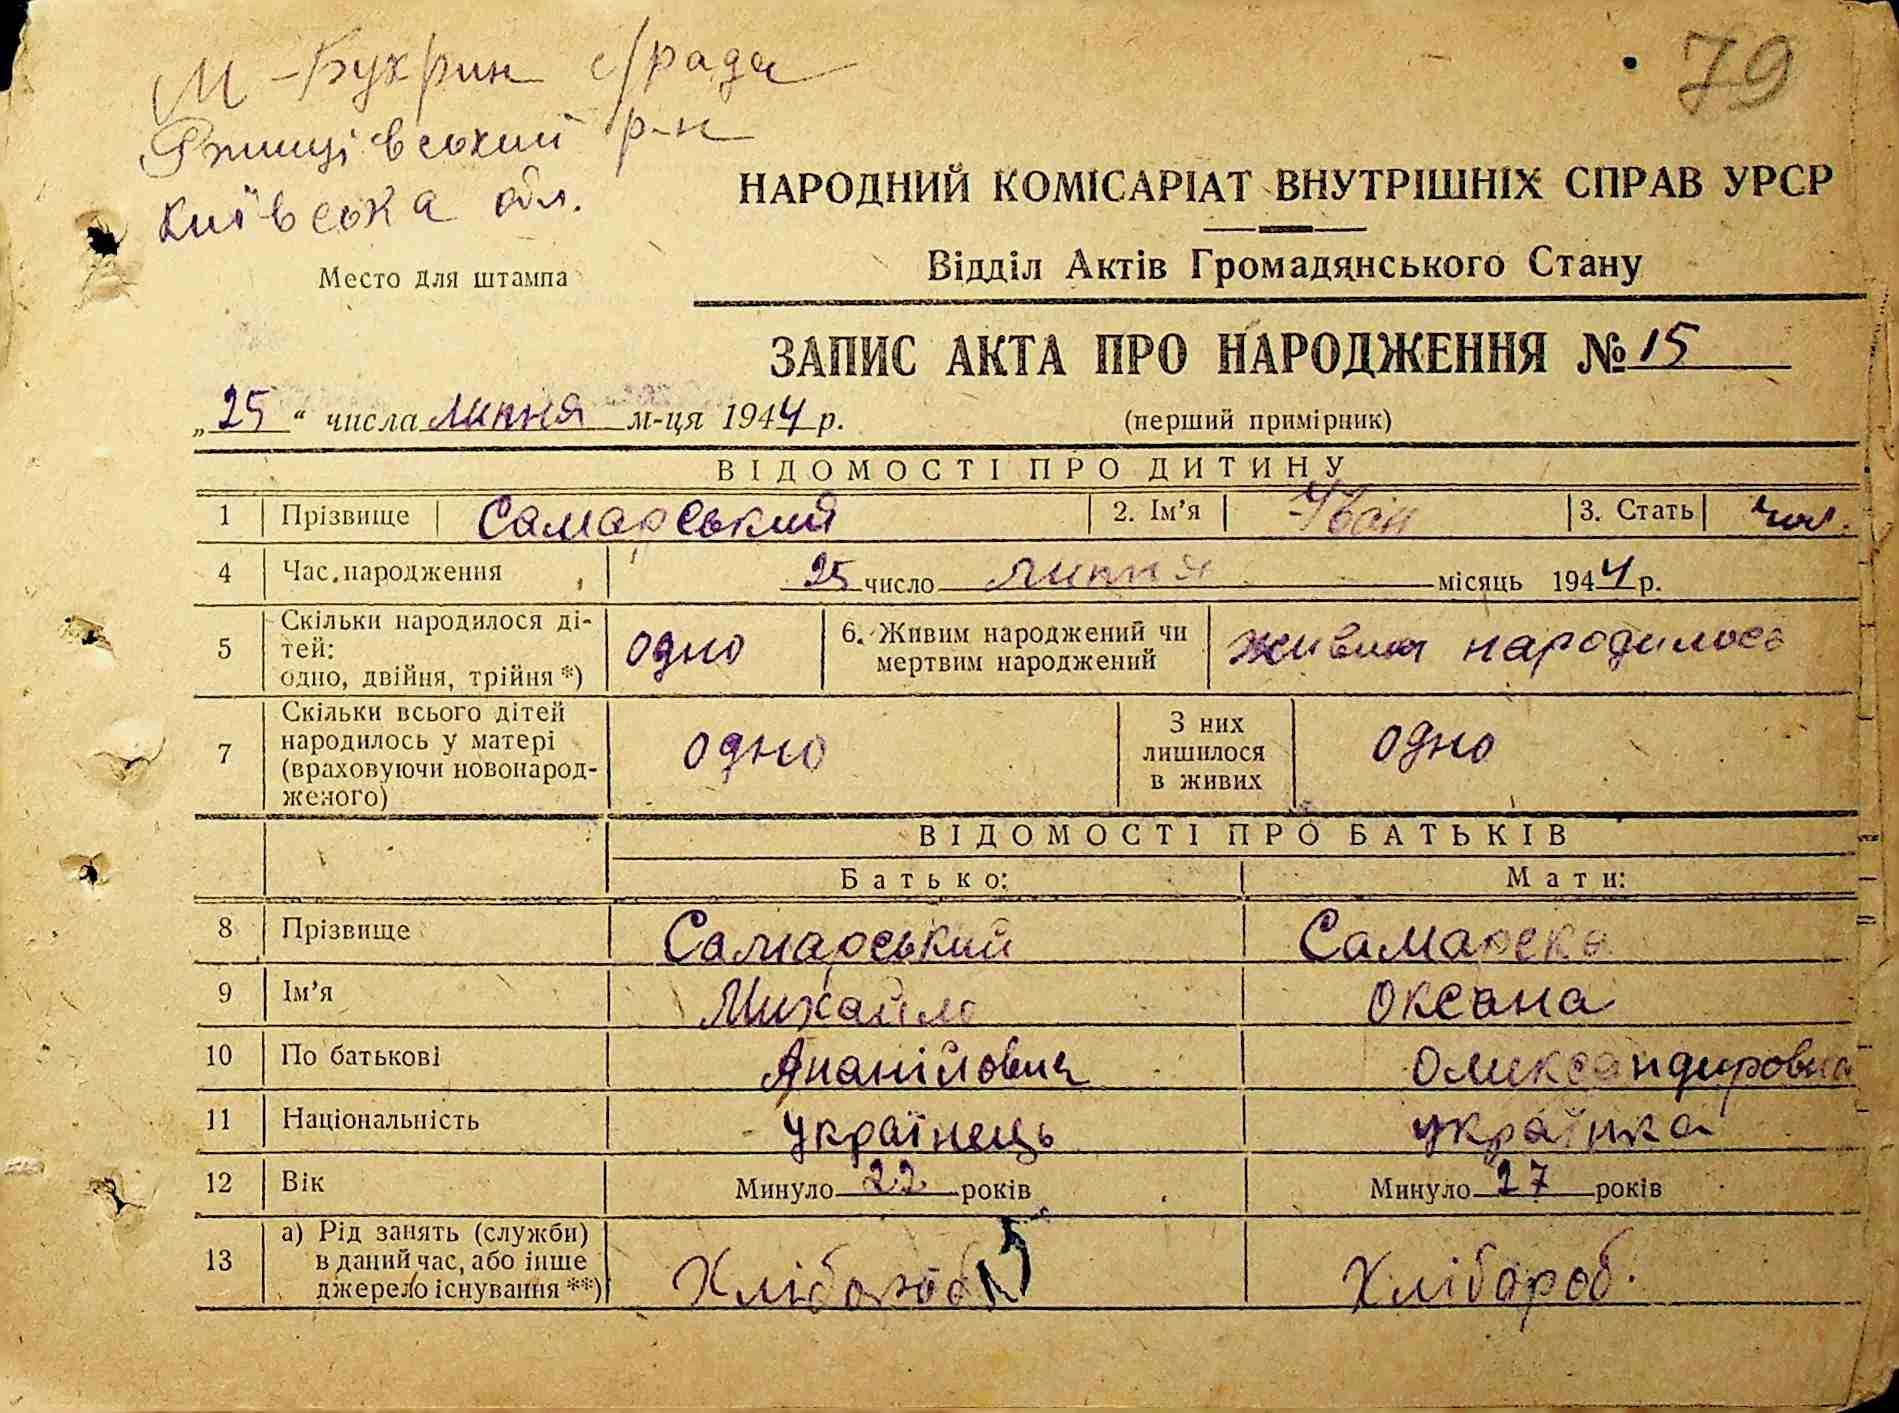 М-Букрин с/рада
79
Ржищівський р-н
Київська обл.
НАРОДНИЙ КОМІСАРІАТ ВНУТРІШНІХ СПРАВ УРСР
Відділ Актів Громадянського Стану
Место для штампа
ЗАПИС АКТА ПРО НАРОДЖЕННЯ № 15
„25“ числа липня м-ця 1944 р. (перший примірник)
ВІДОМОСТІ ПРО ДИТИНУ
1 Прізвище Самарський 2. Ім'я Іван 3. Стать чол.
4 Час народження 25 число липня місяць 1944 р.
5 Скільки народилося ді-
тей:
одно, двійня, трійня *) одно 6. Живим народжений чи
мертвим народжений живим народилось
7 Скільки всього дітей
народилось у матері
(враховуючи новонарод-
женого) одно З них
лишилося
в живих одно
ВІДОМОСТІ ПРО БАТЬКІВ
Батько: Мати:
8 Прізвище Самарський Самарска
9 Ім'я Михайло Оксана
10 По батькові Ананійович Олександировна
11 Національність українець українка
12 Вік Минуло 22 років Минуло 27 років
13 а) Рід занять (служби)
в даний час, або інше
джерело існування **) Хлібороб Хлібороб.